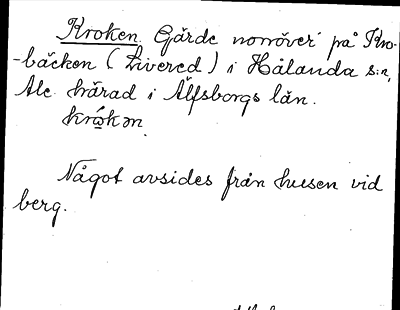 Kroken. Gärde norröver på Kro-
-bäcken (Livered) i Hålanda s:n,
Ale härad i Älfsborgs län.
Något avsides från husen vid
berg.